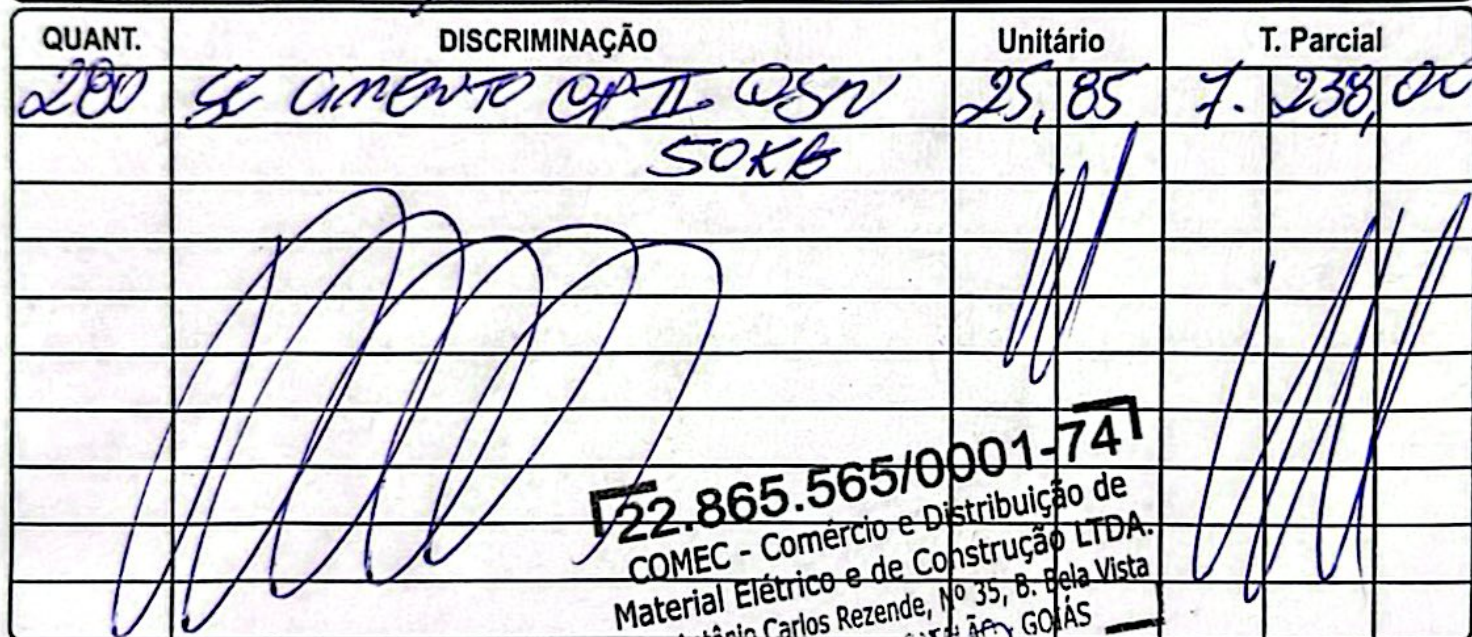 QUANT. DISCRIMINAÇÃO Unitário T. Parcial
280 SC CIMENTO CPII CSN 25,85 7.238,00
50KG
22.865.565/0001-74
COMEC - Comércio e Distribuição de
Material Elétrico e de Construção LTDA.
Carlos Rezende, Nº 35, B. Bela Vista
GOIÁS